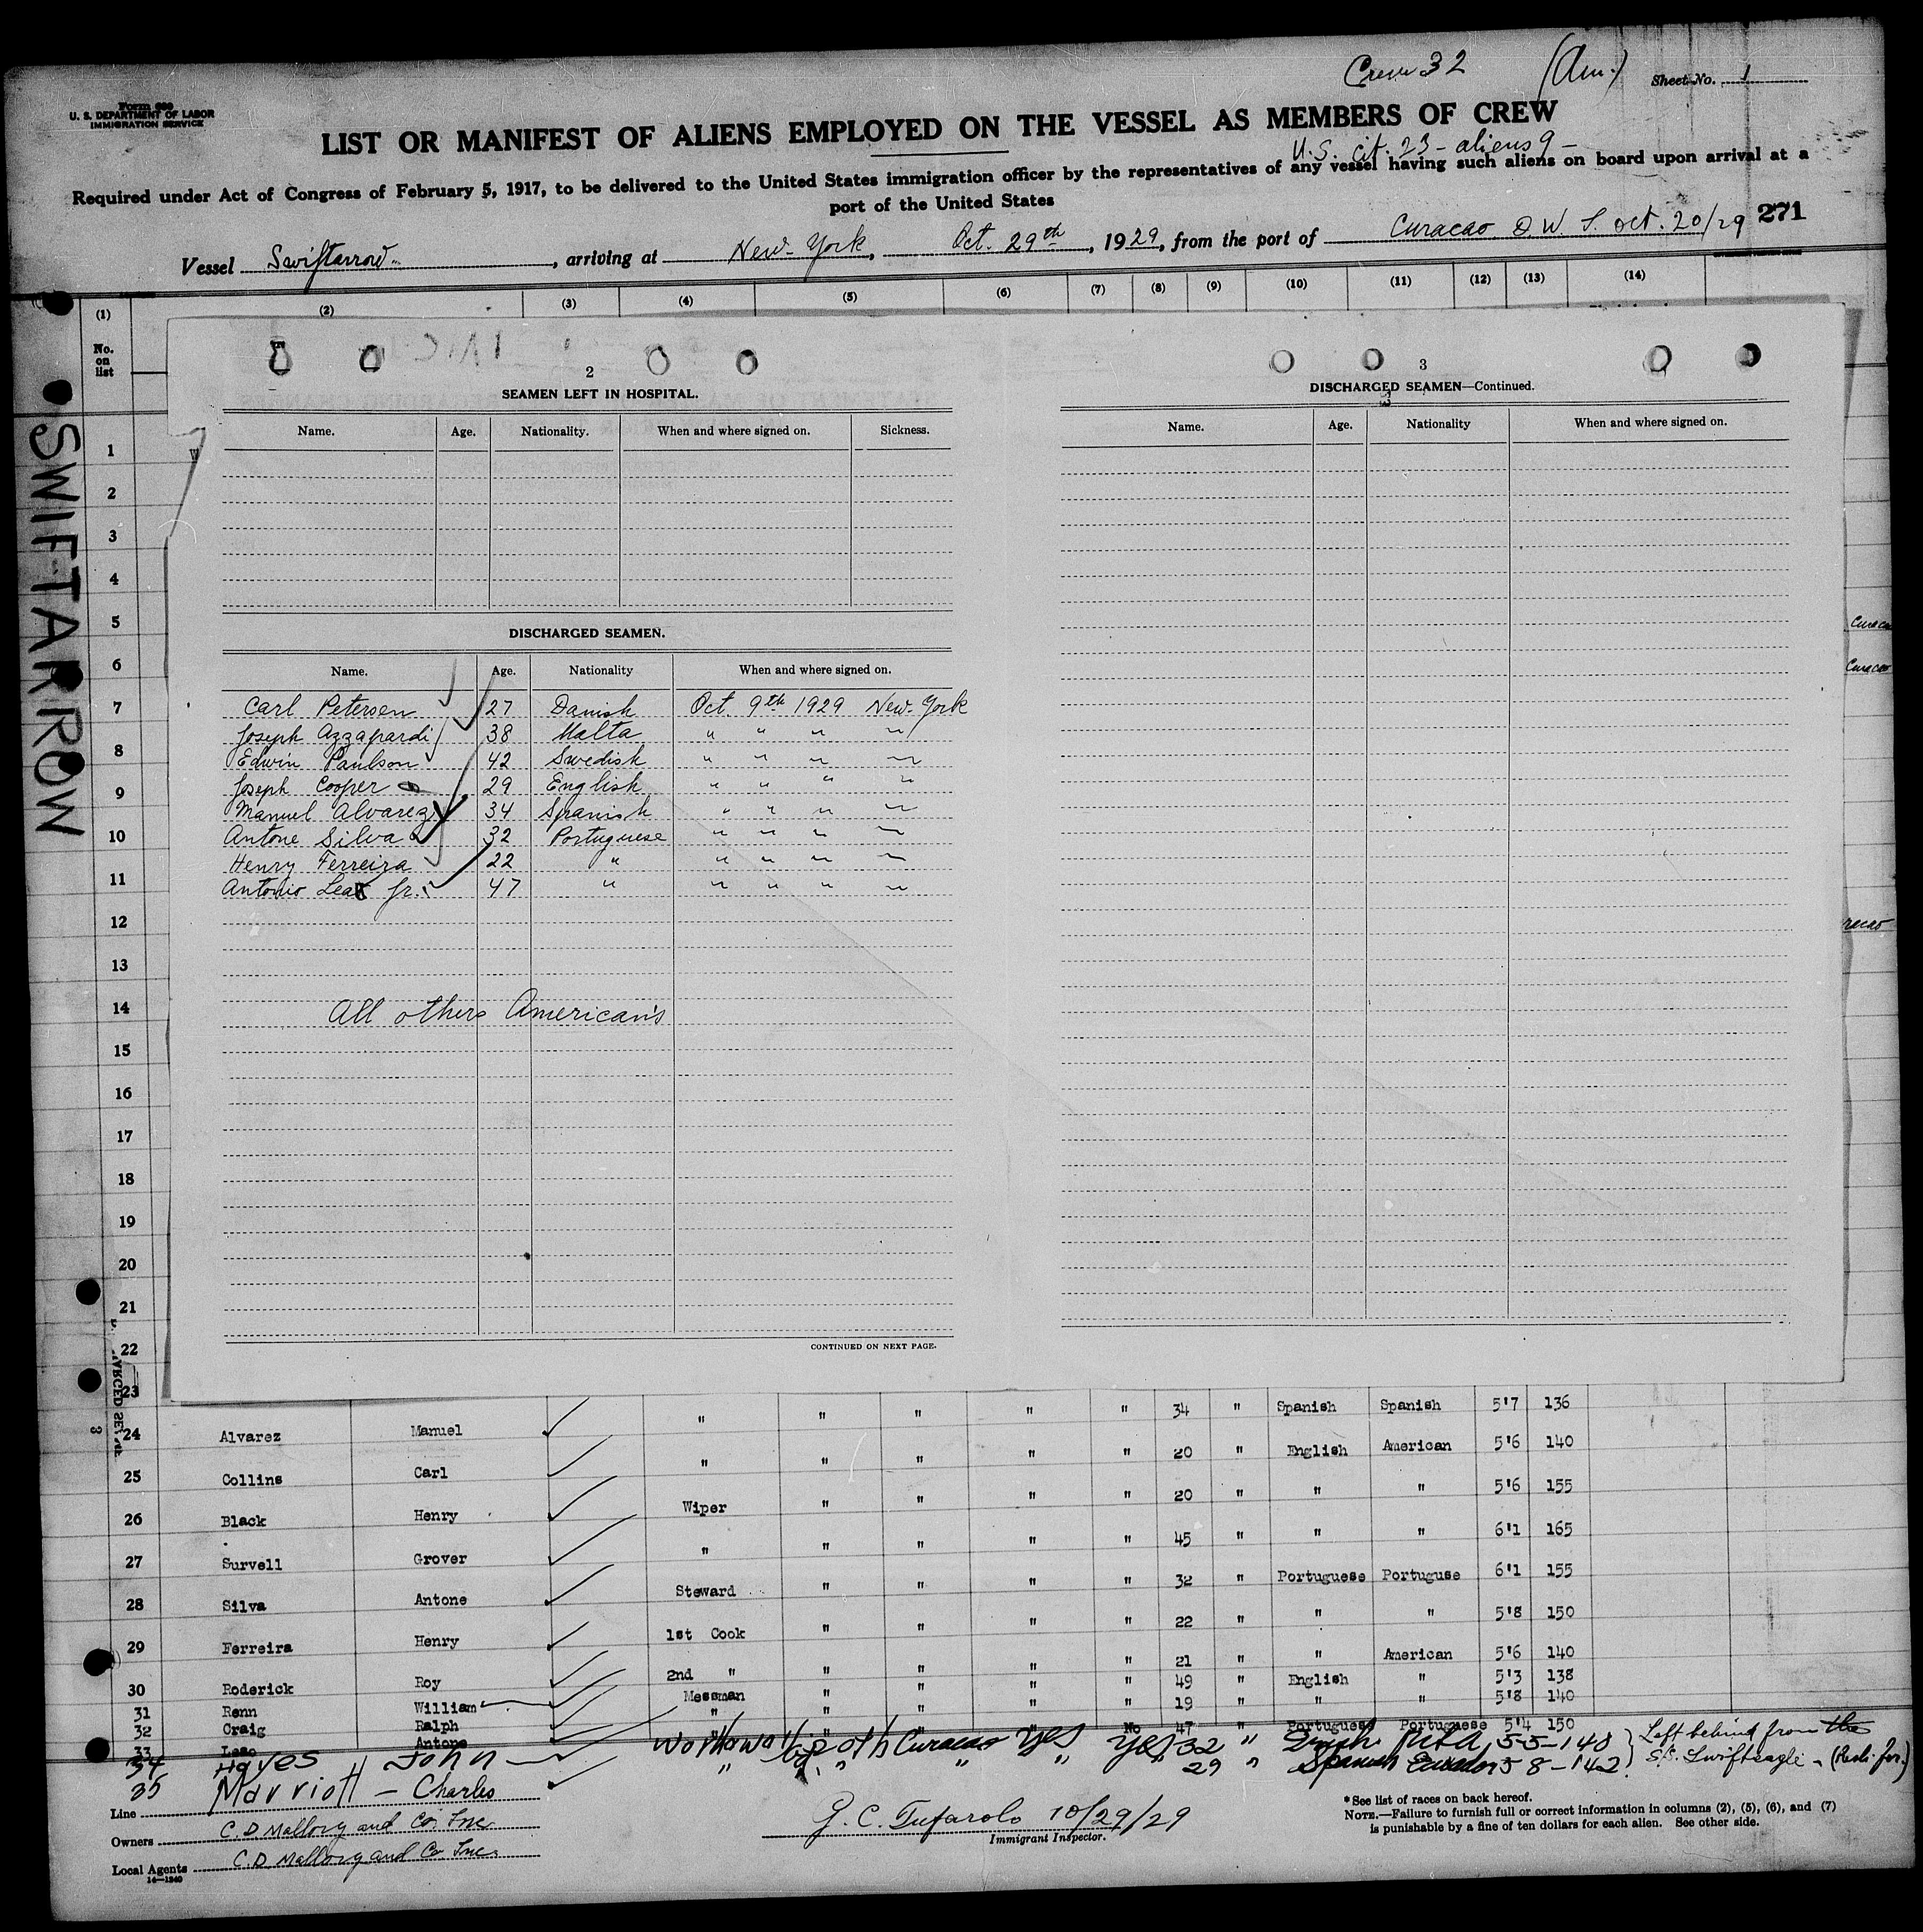 Crew 32 (Am.) Sheet No. 1
Form 689
U. S. DEPARTMENT OF LABOR
IMMIGRATION SERVICE
LIST OR MANIFEST OF ALIENS EMPLOYED ON THE VESSEL AS MEMBERS OF CREW
U.S. cit. 23 - aliens 9 -
Required under Act of Congress of February 5, 1917, to be delivered to the United States immigration officer by the representatives of any vessel having such aliens on board upon arrival at a
port of the United States
271
Vessel Swiftarrow, arriving at New York, Oct. 29th, 1929, from the port of Curacao D. W. I. Oct. 20/29
(1) (2) (3) (4) (5) (6) (7) (8) (9) (10) (11) (12) (13) (14)
No. on list
SWIFTARROW
2
SEAMEN LEFT IN HOSPITAL.
Name. Age. Nationality. When and where signed on. Sickness.
DISCHARGED SEAMEN.
Name. Age. Nationality When and where signed on.
Carl Petersen 27 Danish Oct. 9th 1929 New York
Joseph Azzapardi 38 Malta " " " "
Edwin Paulson 42 Swedish " " " "
Joseph Cooper 29 English " " " "
Manuel Alvarez 34 Spanish " " " "
Antone Silva 32 Portuguese " " " "
Henry Ferreira 22 " " " " "
Antonio Leao Jr. 47 " " " " "
All others American's
CONTINUED ON NEXT PAGE.
3
DISCHARGED SEAMEN—Continued.
Name. Age. Nationality When and where signed on.
1
2
3
4
5 Curacao
6 Curacao
7
8
9
10
11
12
13
14
15
16
17
18
19
20
21
22
23
24 Alvarez Manuel " " " " " 34 " Spanish Spanish 5'7 136
25 Collins Carl " " " " " 20 " English American 5'6 140
26 Black Henry Wiper " " " " 20 " " " 5'6 155
27 Survell Grover " " " " " 45 " " " 6'1 165
28 Silva Antone Steward " " " " 32 " Portuguese Portuguse 6'1 155
29 Ferreira Henry 1st Cook " " " " 22 " " " 5'8 150
30 Roderick Roy 2nd " " " " " 21 " " American 5'6 140
31 Renn William Messman " " " " 49 " English " 5'3 138
32 Craig Ralph " " " " " 19 " " " 5'8 140
33 Leao Antone " " " " No 47 " Portuguese Portuguese 5'4 150
34 Hayes John Workaway Curacao Yes Yes 32 " 5-5-148
35 Marriott - Charles " " " " 29 " Spanish Ecuador 5 8-142
Left behind from the
S.S. Swifteagle -
Line
Owners C. D. Mallory and Co. Inc.
Local Agents C. D. Mallory and Co Inc.
14—1240
G. C. Tufarolo 10/29/29
Immigrant Inspector.
* See list of races on back hereof.
NOTE.—Failure to furnish full or correct information in columns (2), (5), (6), and (7)
is punishable by a fine of ten dollars for each alien. See other side.